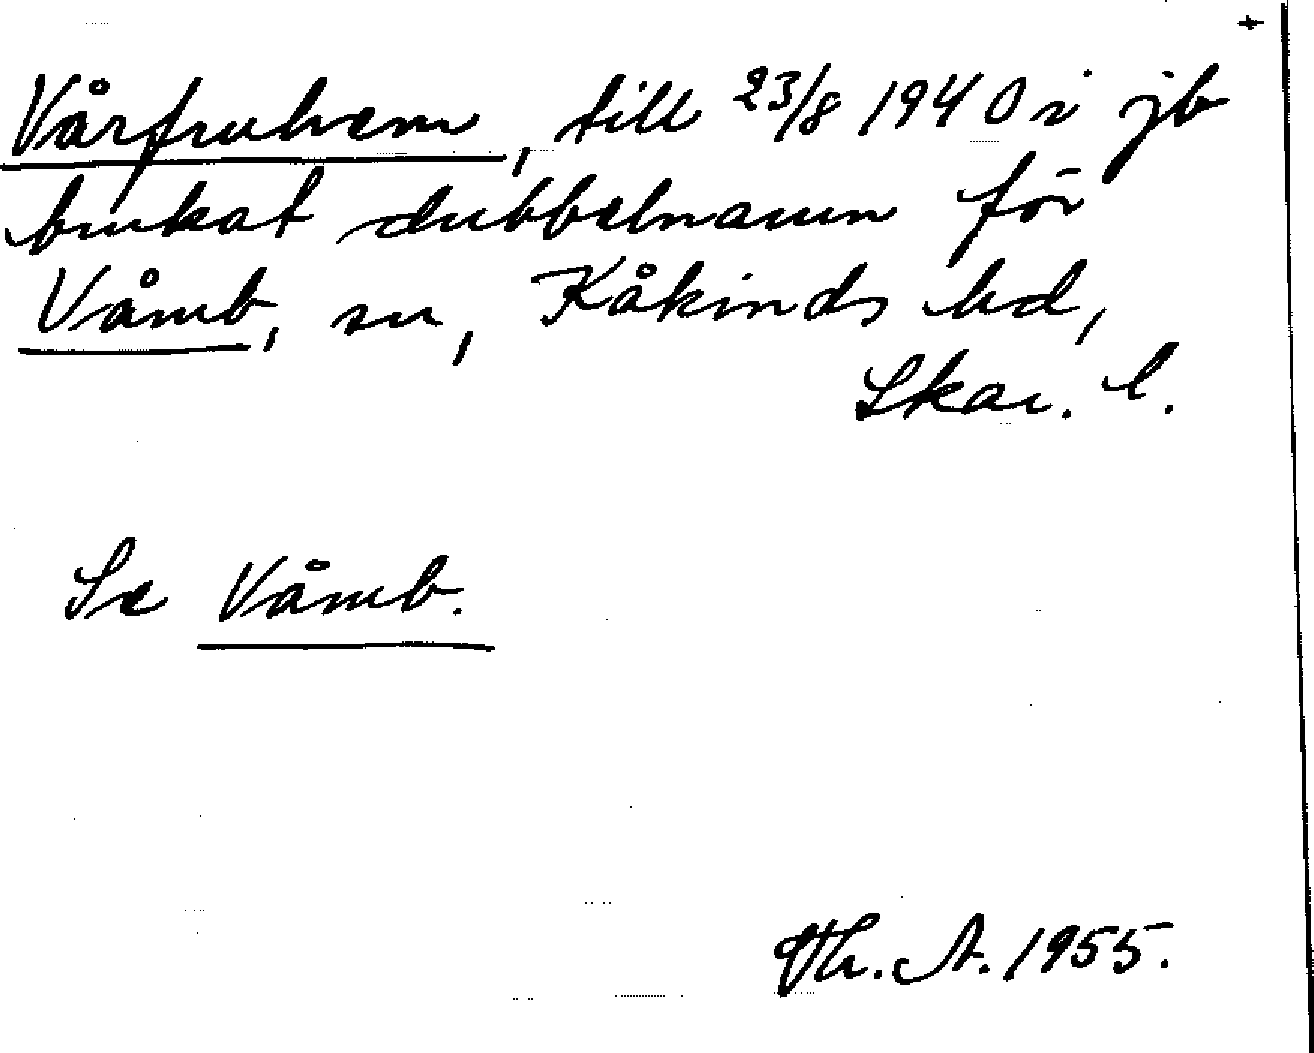 Vårfruhem, till 23/8 1940 i jb
brukat dubbelnamn för
Våmb, sn, Kåkinds hd,
Skar. l.
Se Våmb.
Th. A. 1955.